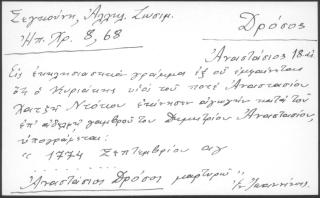 Σεγκούνη, Ἀλληλ. Ζωσιμ.
Ἠπ. Χρ. 8, 68
Δρόσος
Ἀναστάσιος 18 αἰ
Εἰς ἐκκλησιαστικὸν γράμμα ἐξ οὗ ἐμφαίνεται
ὅτι ὁ Κυριάκης υἱὸς τοῦ ποτὲ Ἀναστασίου
Χατζῆ Ντόκου ἐκίνησεν ἀγωγὴν κατὰ τοῦ
ἐπ' ἀδελφῇ γαμβροῦ του Δημητρίου Ἀναστασίου,
ὑπογράφεται:
" 1774 Σεπτεμβρίου αῃ
Ἀναστάσιος Δρόσος μαρτυρῶ"